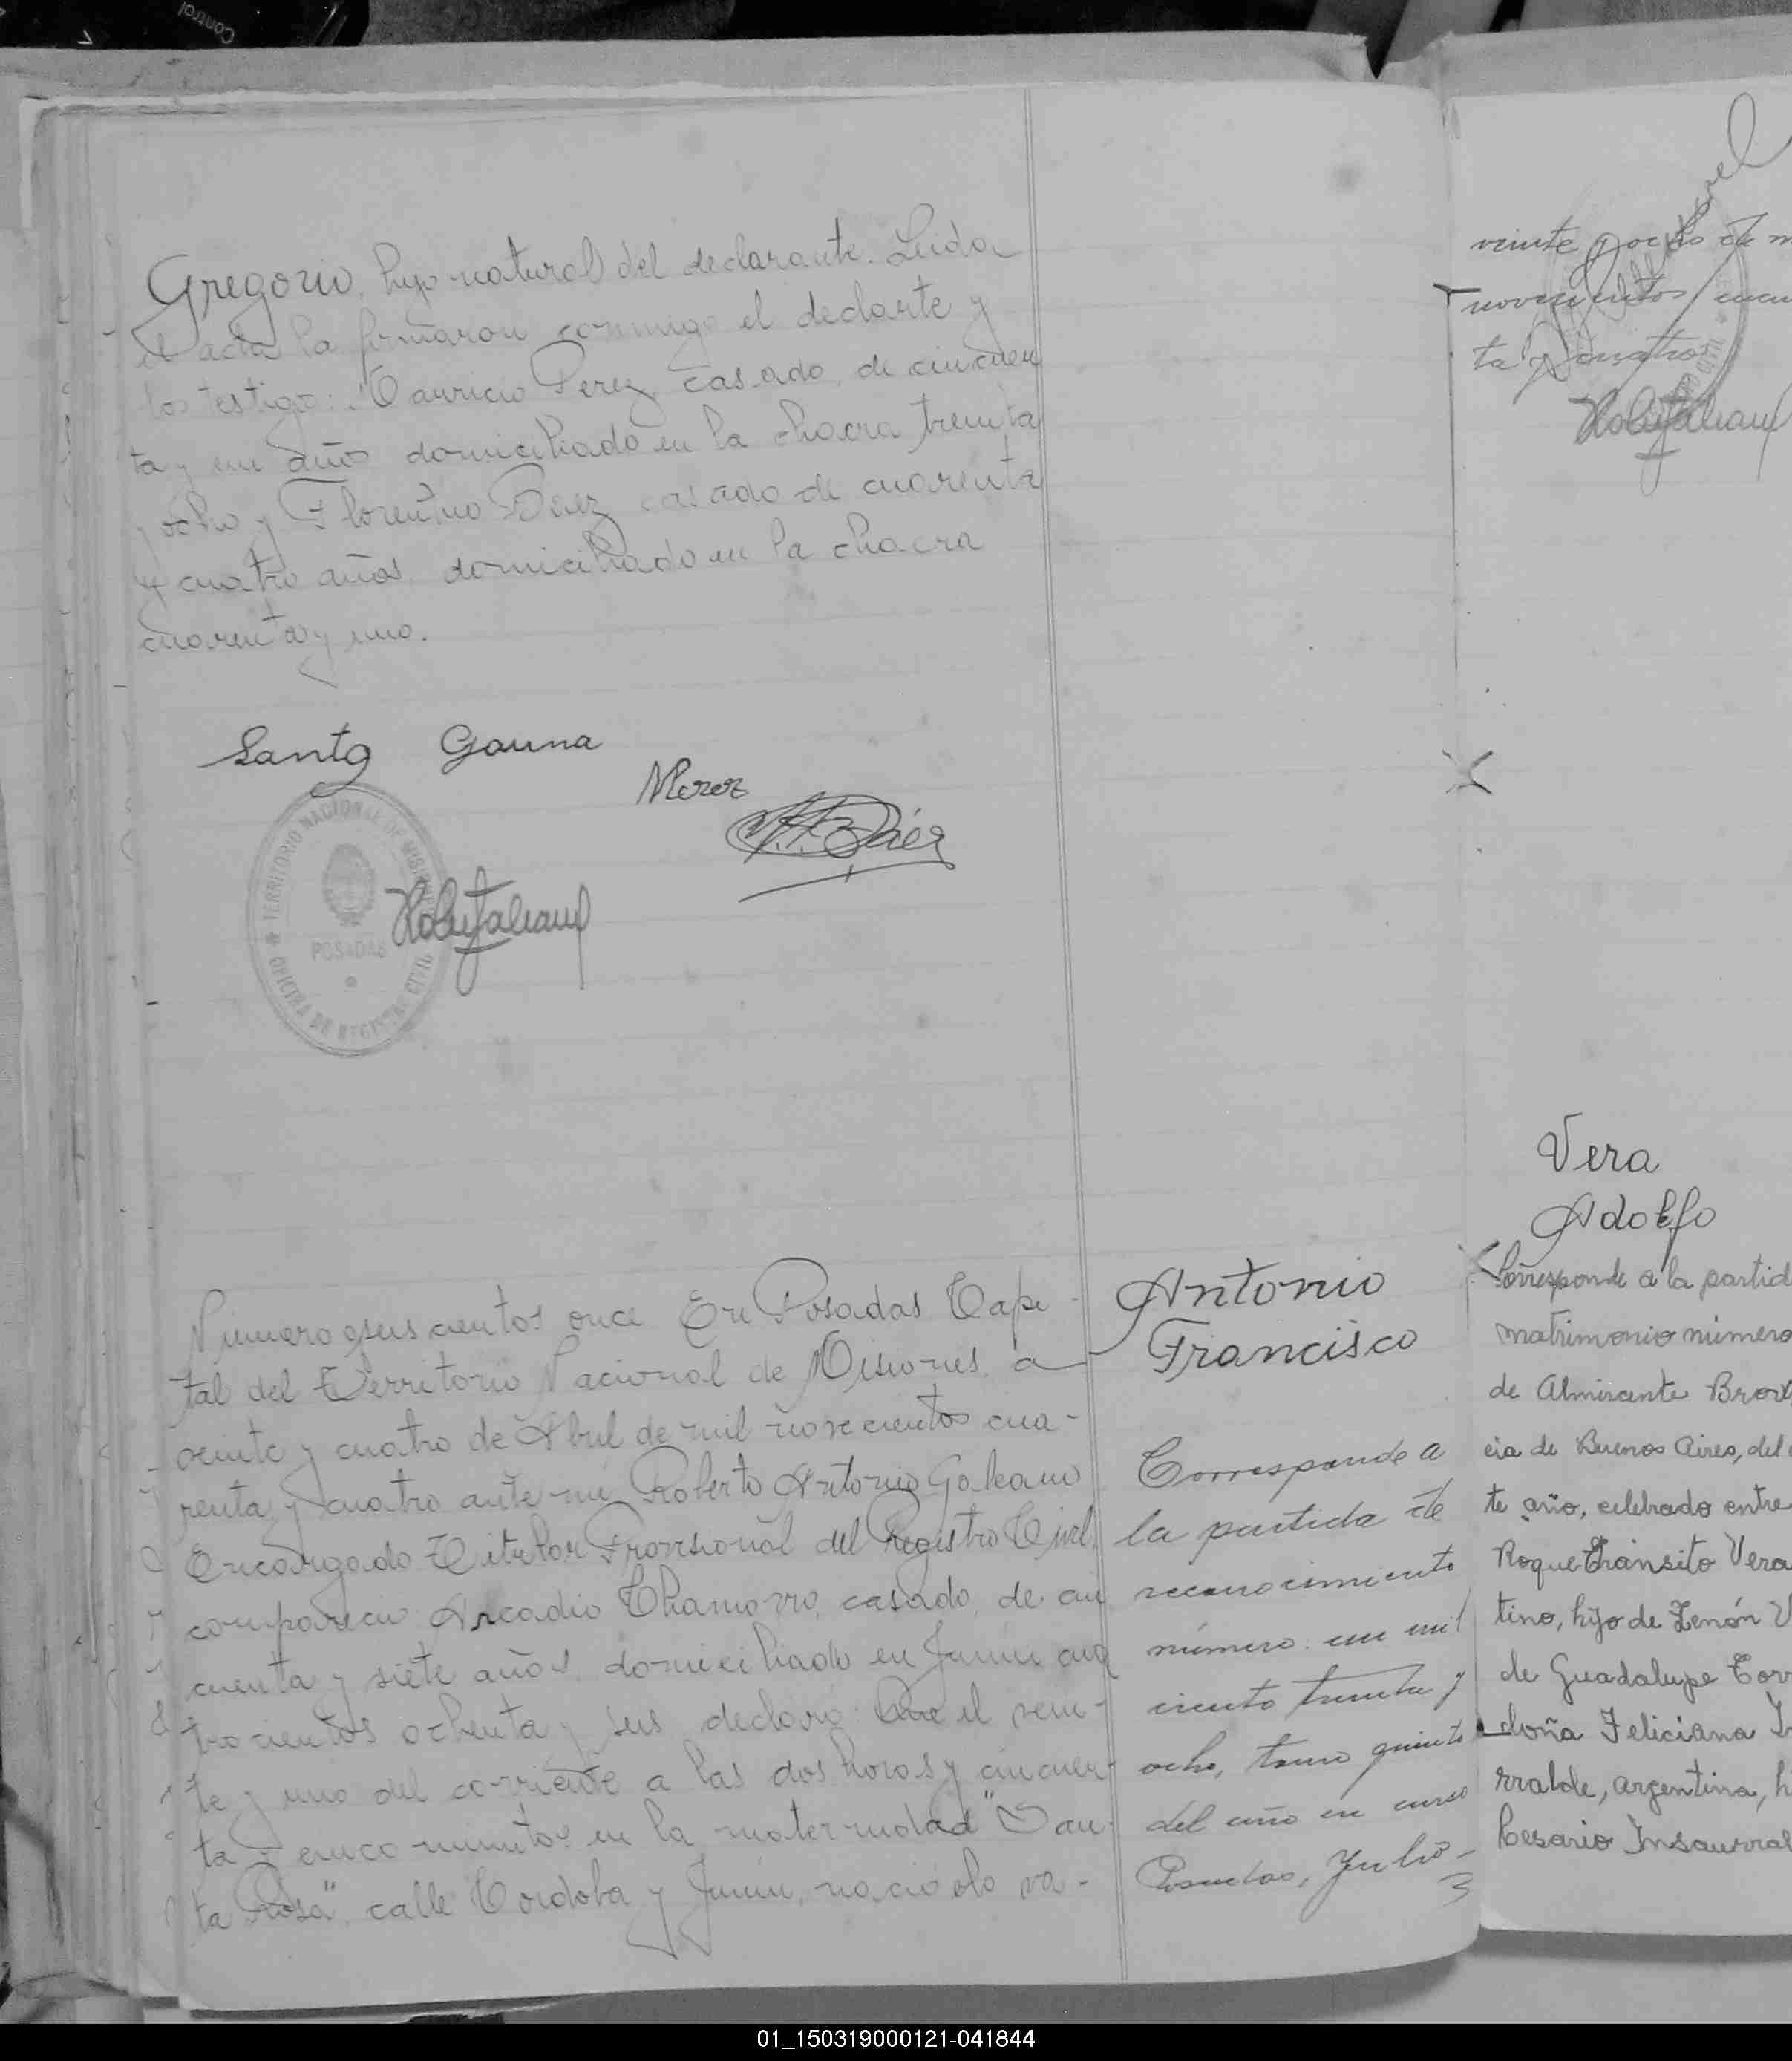 Control
Gregorio, hijo natural del declarante. Leida
el acta la firmaron conmigo el declarte y
los testigos: Mauricio Perez, casado, de cincuen
ta y un años domiciliado en la chacra treinta
y ocho y Florentino Baez casado de cuarenta
y cuatro años, domiciliado en la chacra
cuarenta y uno.
Santo Gauna
MPerez
Báez
TERRITORIO NACIONAL DE MISIONES
POSADAS
OFICINA DE REGISTRO CIVIL
Número seiscientos once En Posadas Capi-
tal del Territorio Nacional de Misiones, a
veinte y cuatro de Abril de mil novecientos cua-
renta y cuatro ante mi Roberto Antonio Galeano
Encargado Titular Provisional del Registro Civil,
comparece: Arcadio Chamorro, casado, de cin
cuenta y siete años, domiciliado en Junin cua
trocientos ochenta y seis declaró: Que el vein-
te y uno del corriente a las dos horas y cincuen-
ta y cinco minutos en la maternidad "San-
ta Rosa", calle Cordoba y Junin, nació ola va-
Antonio
Francisco
Corresponde a
la partida de
reconocimiento
número: un mil
ciento treinta y
ocho, tomo quinto
del año en curso
Posadas, Julio-
3
veinte y ocho de m
novecientos cincu
ta y cuatro
Vera
Adolfo
Corresponde a la partid
matrimonio número
de Almirante Brow
cia de Buenos Aires, del
te año, celebrado entre
Roque Tránsito Vera
tino, hijo de Zenón V
de Guadalupe Corr
doña Feliciana In
rralde, argentina, h
Cesario Insaurral
01_150319000121-041844